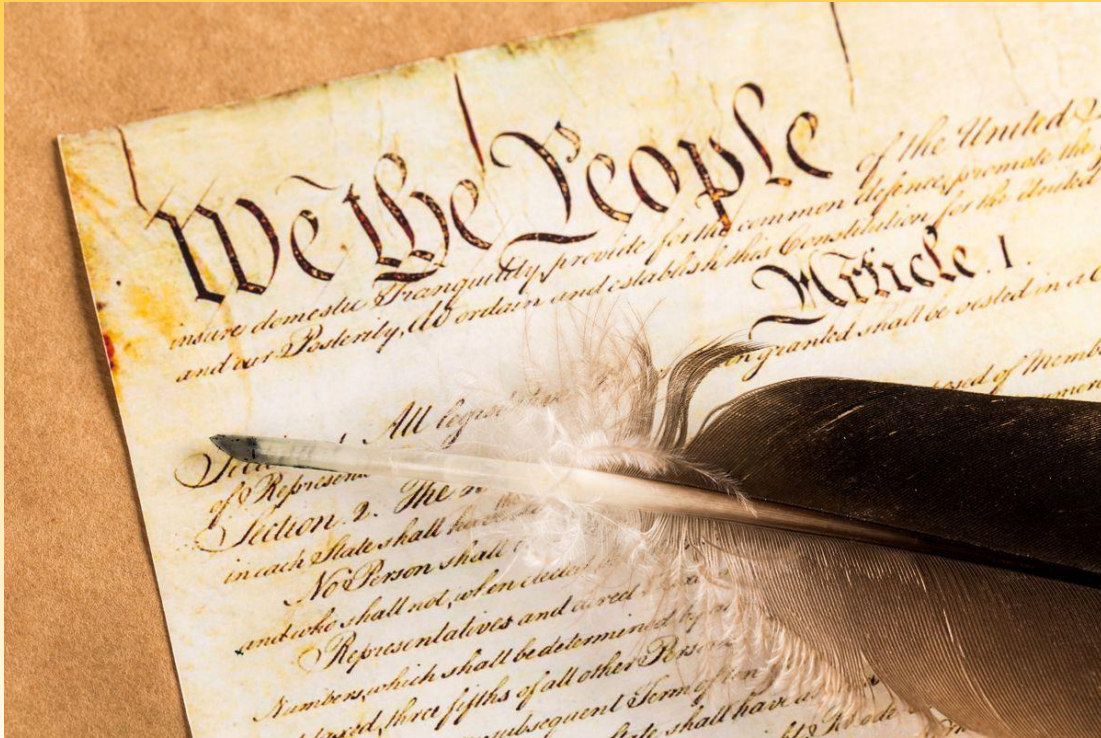 We the People of the United
insure domestic Tranquility, provide for the common defence, promote the
and our Posterity, do ordain and establish this Constitution for the United
Article. I.
granted shall be vested in a
All legis
of Represen
Section. 2. The
in each State shall have
No Person shall
and who shall not, when elected
Representatives and direct Taxes
Numbers, which shall be determined by
three fifths of all other Persons
subsequent Term of ten
State shall have